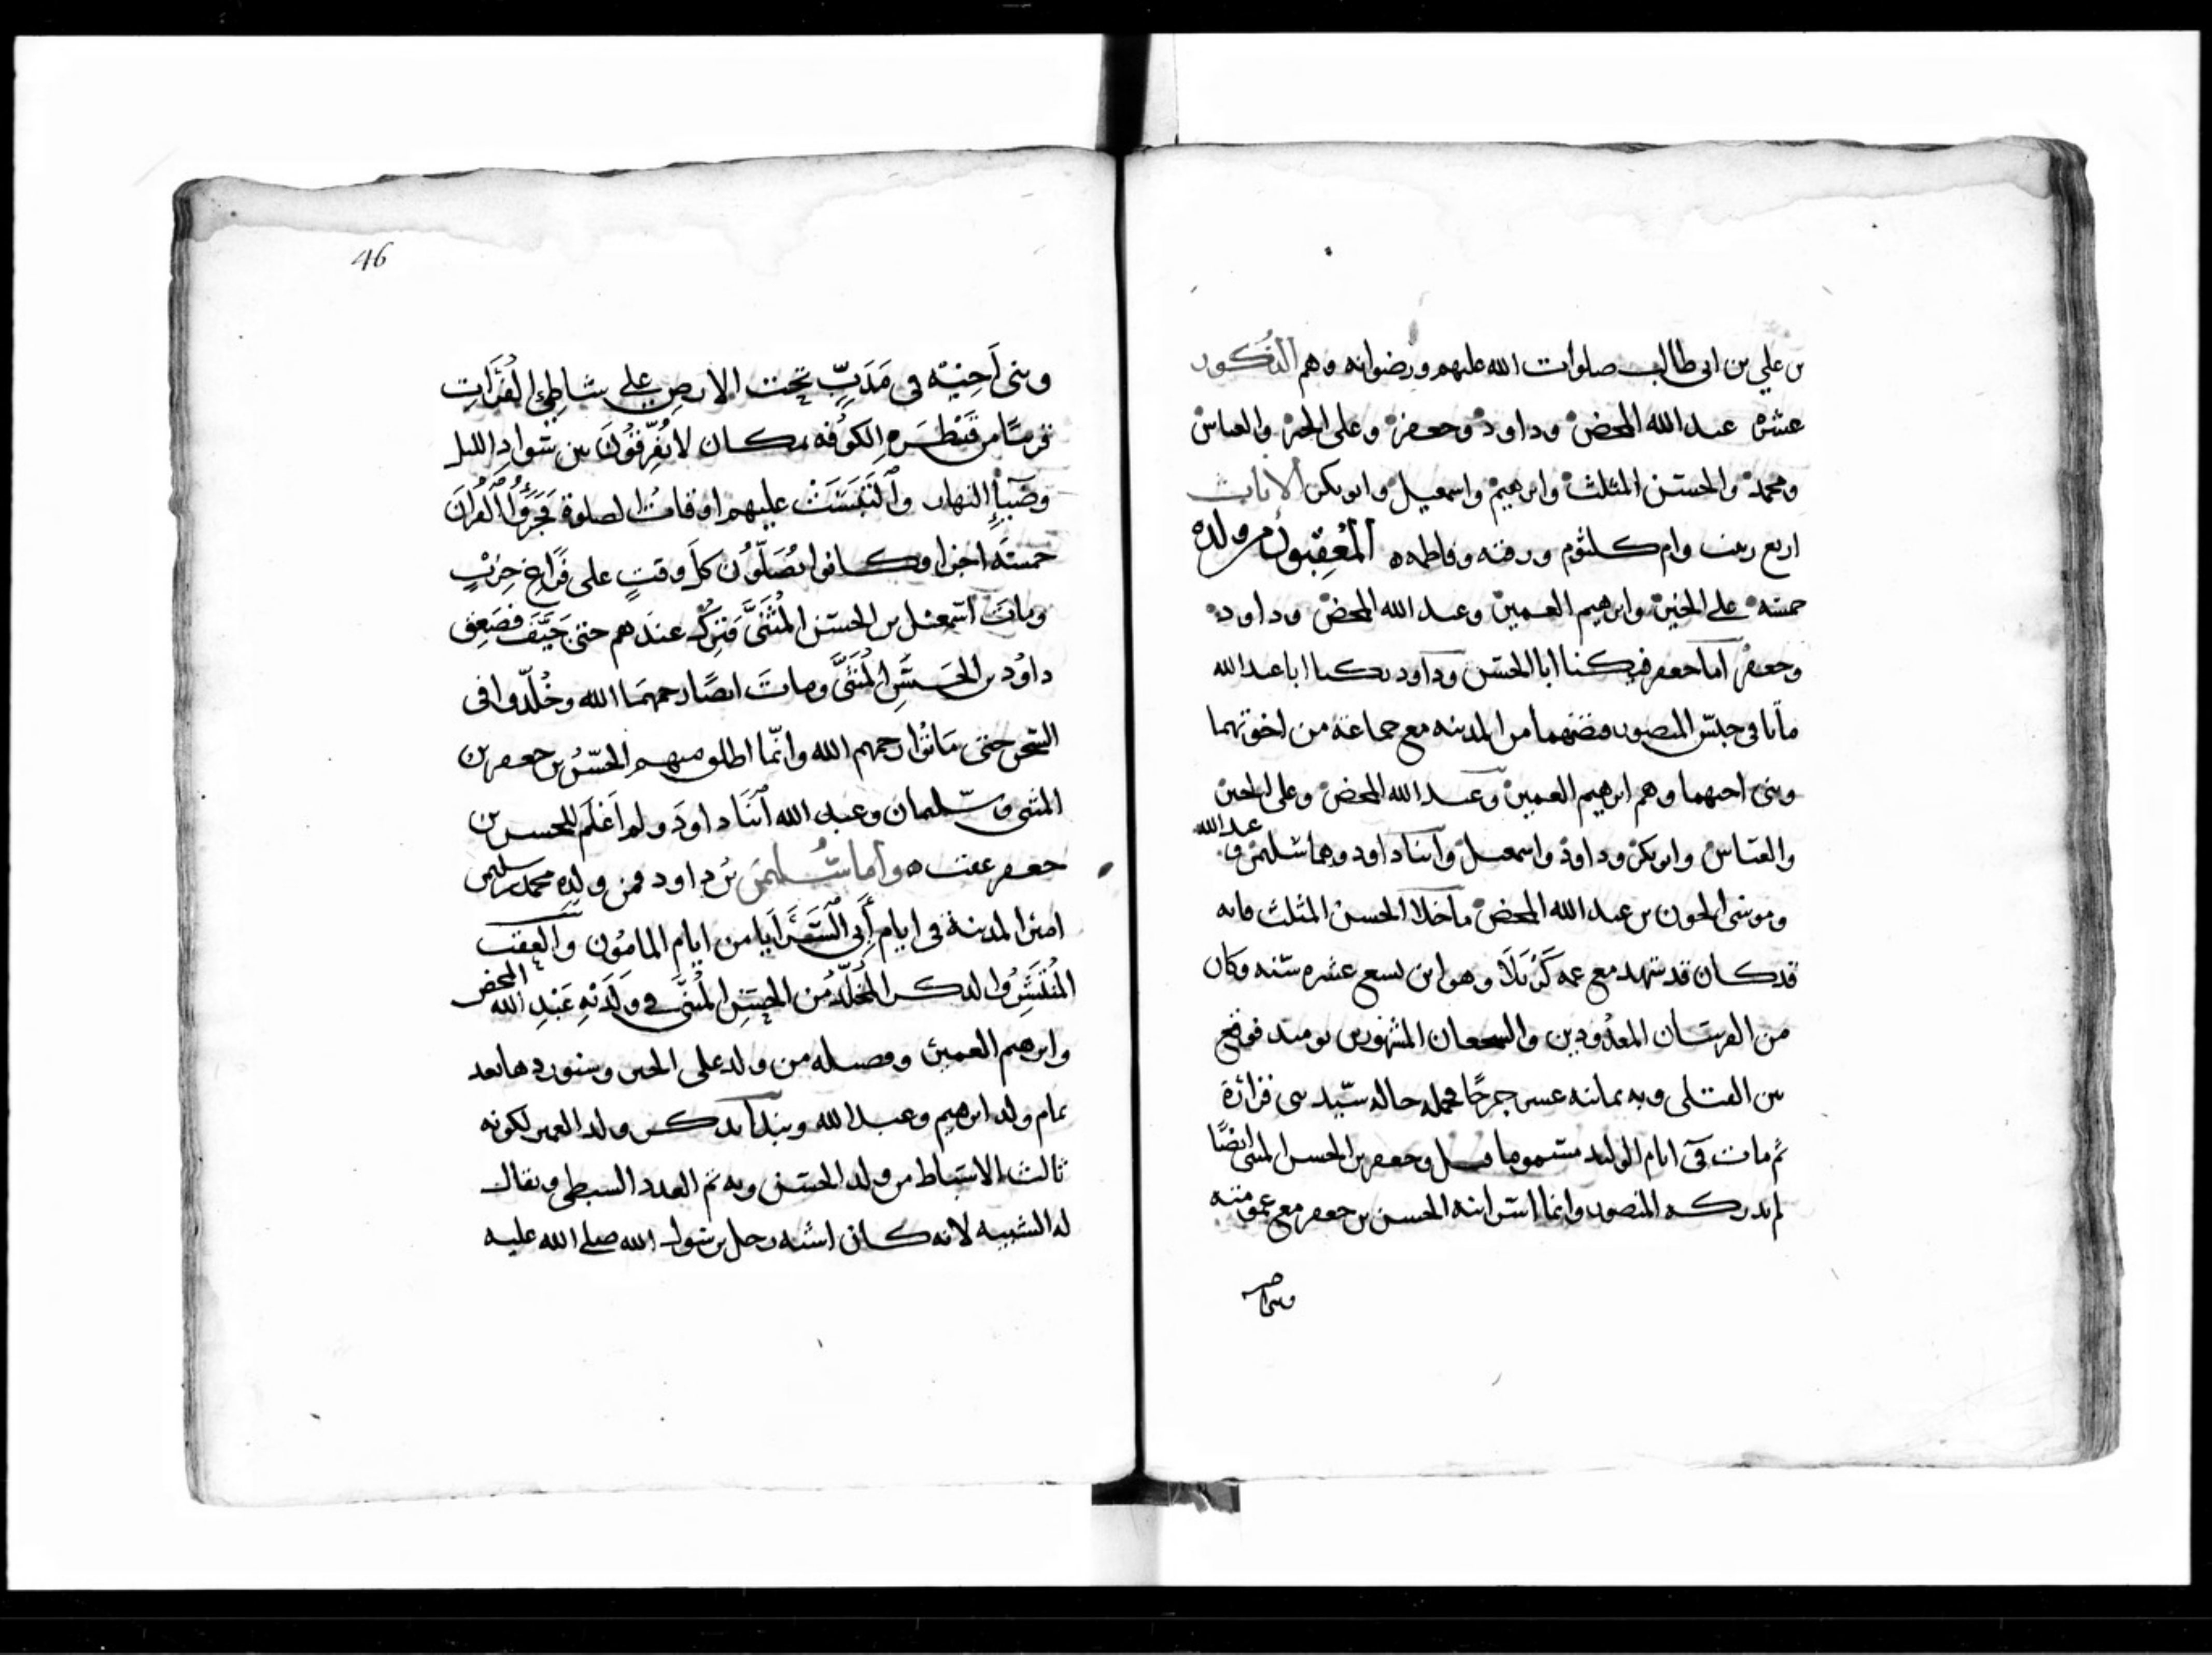 بن علي بن ابى طالب صلوات الله عليهم ورضوانه وهم الذكور
عشره عبد الله المحض وداود وجعفر وعلى الخير والعباس
ومحمد والحسن المثلث وابرهيم واسمعيل وابو بكر الاناث
اربع زينب وام كلثوم ورقيه وفاطمه ه المعقبون من ولده
خمسه على الخير وابرهيم الغمر وعبد الله المحض وداود
وجعفر اما جعفر فيكنا ابا الحسن وداود يكنا ابا عبد الله
ماتا فى حبس المنصور مع جماعة من اخوتهما
وبنى اخيهما وهم ابرهيم الغمر وعبد الله المحض وعلى الخير
والعباس وابو بكر وداود واسمعيل وابنا داود وهما سليمن و عبد الله
وموسى الجون بن عبد الله المحض ما خلا الحسن المثلث فانه
قد كان قد شهد مع عمه كربلا وهو ابن تسع عشره سنه وكان
من الفرسان المعدودين والشجعان المشهورين يومئذ فوقع
بين القتلى وبه ثمانيه عشر جرحًا فحمله خاله سيد بنى فزارة
ثم مات فى ايام الوليد مسموما وجعفر بن الحسن المثنى ايضًا
لم يدركه المنصور وانما اسر ابنه الحسن بن جعفر مع عمومته
وبنى
46
وبنى اخيه فى تحت الارض على شاطئ الفرات
قريبًا من قنطره الكوفه بمكان لا يفرقون بين سواد الليل
وضيآء النهار والتبست عليهم اوقات الصلوة فجزءوا القران
خمسة اجزا وكانوا يصلون كل وقت على فراغ حزب
ومات اسمعيل بن الحسن المثنى فترك عندهم حتى جيف فصعق
داود بن الحسن المثنى ومات ايضًا رحمهما الله وخلدوا فى
السجن حتى ماتوا رحمهم الله وانما اطلق منهم الحسن بن جعفر بن
المثنى وسليمان وعبد الله ابنا داود ولم اعلم للحسن بن
جعفر عقب ه واما سليمن بن داود فمن ولده محمد بن سليمن
امير المدينة فى ايام أبى السرايا من ايام المامون والعقب
المنتشر والذكر المخلد من الحسن المثنى فى ولديه عبد الله المحض
وابرهيم الغمر وفصيله من ولد على الخير وسنوردها بعد
تمام ولد ابرهيم وعبد الله ونبدا بذكر ولد الغمر لكونه
ثالث الاسباط من ولد الحسن وبه تم العدد السبطى ويقال
له الشبيه لانه كان اشبه رجل برسول الله صلى الله عليه